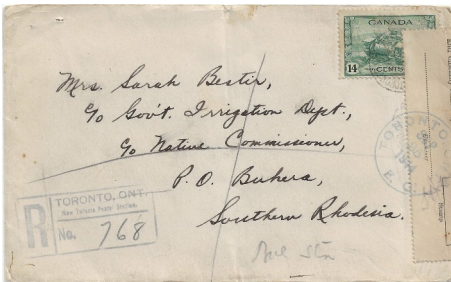 CANADA
14 CENTS
Mrs. Sarah Bestir,
c/o Gov't. Irrigation Dept.,
c/o Native Commissioner,
P.O. Buhera,
Southern Rhodesia.
TORONTO
TORONTO, ONT.
R
No. 768